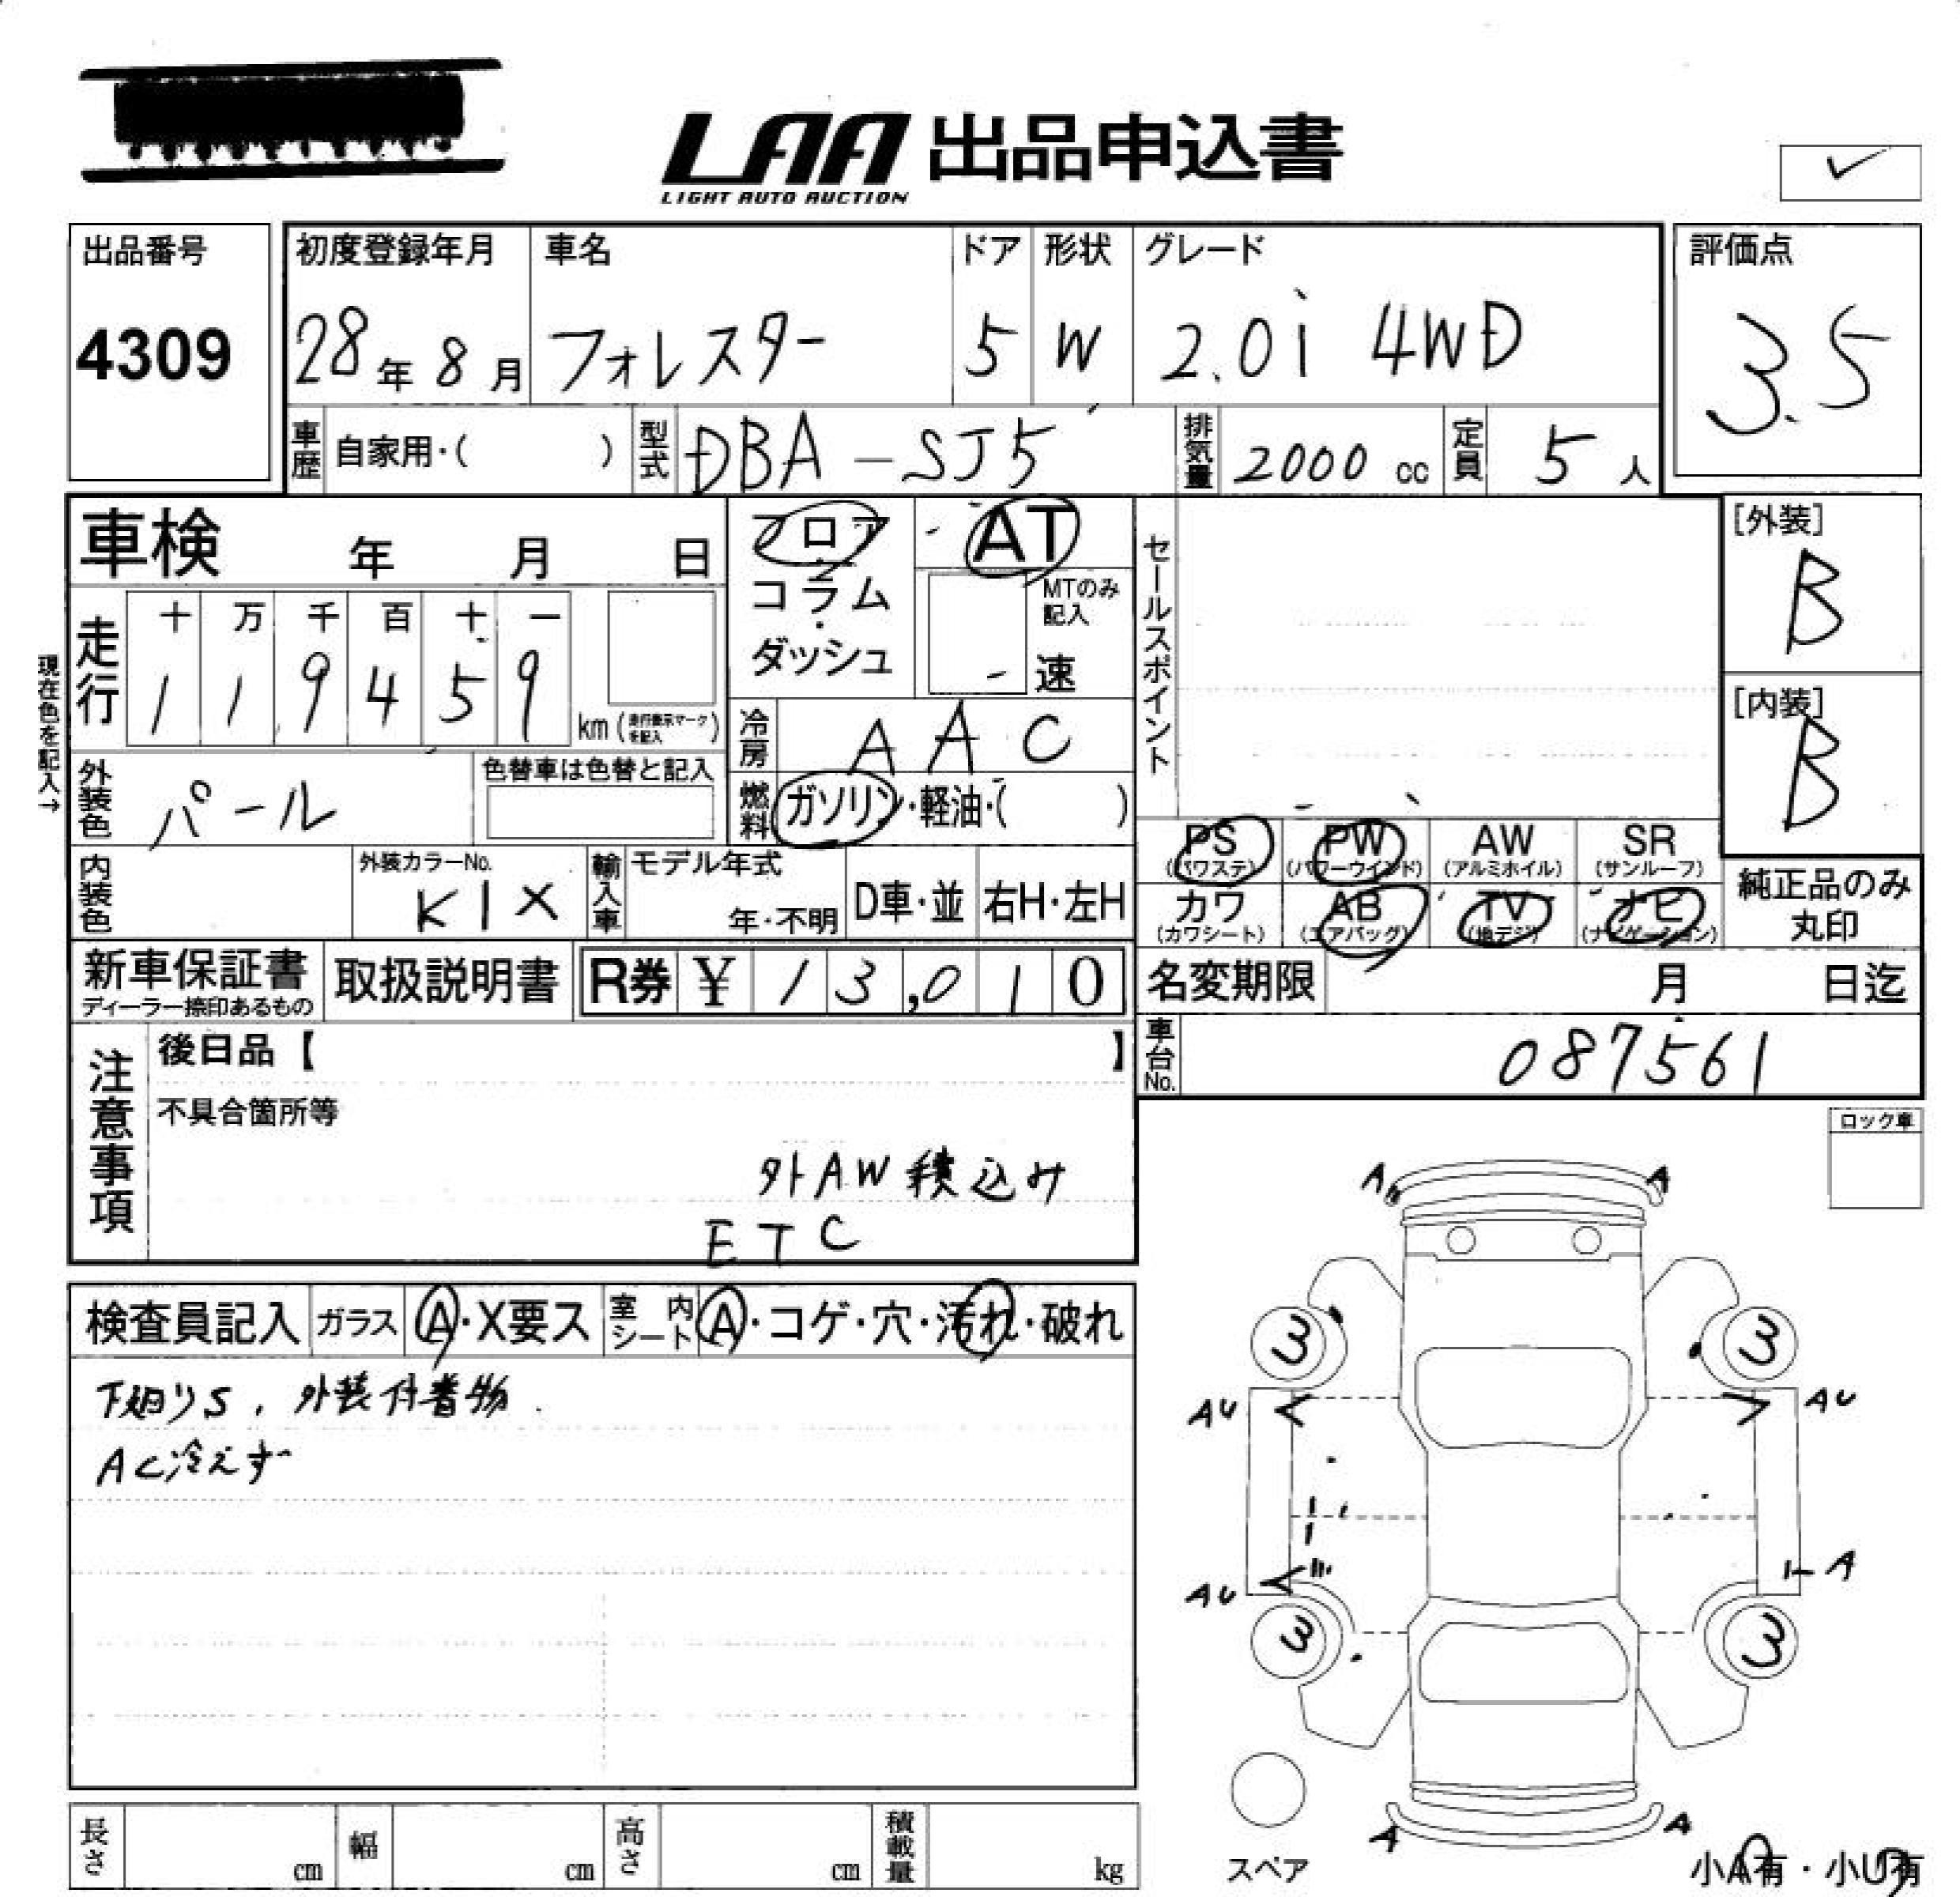 LAA 出品申込書
LIGHT AUTO AUCTION
出品番号
4309
初度登録年月
28年8月
車名
フォレスター
ドア
5
形状
W
グレード
2.0i 4WD
評価点
3.5
車歴 自家用・( )
型式 DBA-SJ5
排気量 2000 cc
定員 5人
車検 年 月 日
フロア・コラム・ダッシュ
AT
MTのみ記入
- 速
セールスポイント
[外装]
B
[内装]
B
現在色を記入→
走行
十 万 千 百 十 一
1 1 9 4 5 9
km (走行表示マークを記入)
冷房 AAC
外装色 パール
色替車は色替と記入
燃料 ガソリン・軽油・( )
PS (パワステ)
PW (パワーウインド)
AW (アルミホイル)
SR (サンルーフ)
内装色
外装カラーNo.
K1X
輸入車
モデル年式
年・不明
D車・並
右H・左H
カワ (カワシート)
AB (エアバッグ)
TV (地デジ)
ナビ (ナビゲーション)
純正品のみ丸印
新車保証書
ディーラー捺印あるもの
取扱説明書
R券 ¥ 13,010
名変期限 月 日迄
車台No. 087561
注意事項
後日品【 】
不具合箇所等
外AW積込み
ETC
ロック車
検査員記入
ガラス A・X要ス
室内シート A・コゲ・穴・汚れ・破れ
下廻りS, 外装付着物
AC冷えず
A A
3 3
AU AU
AU A
3 3
A A
スペア
小A有・小U有
長さ cm
幅 cm
高さ cm
積載量 kg